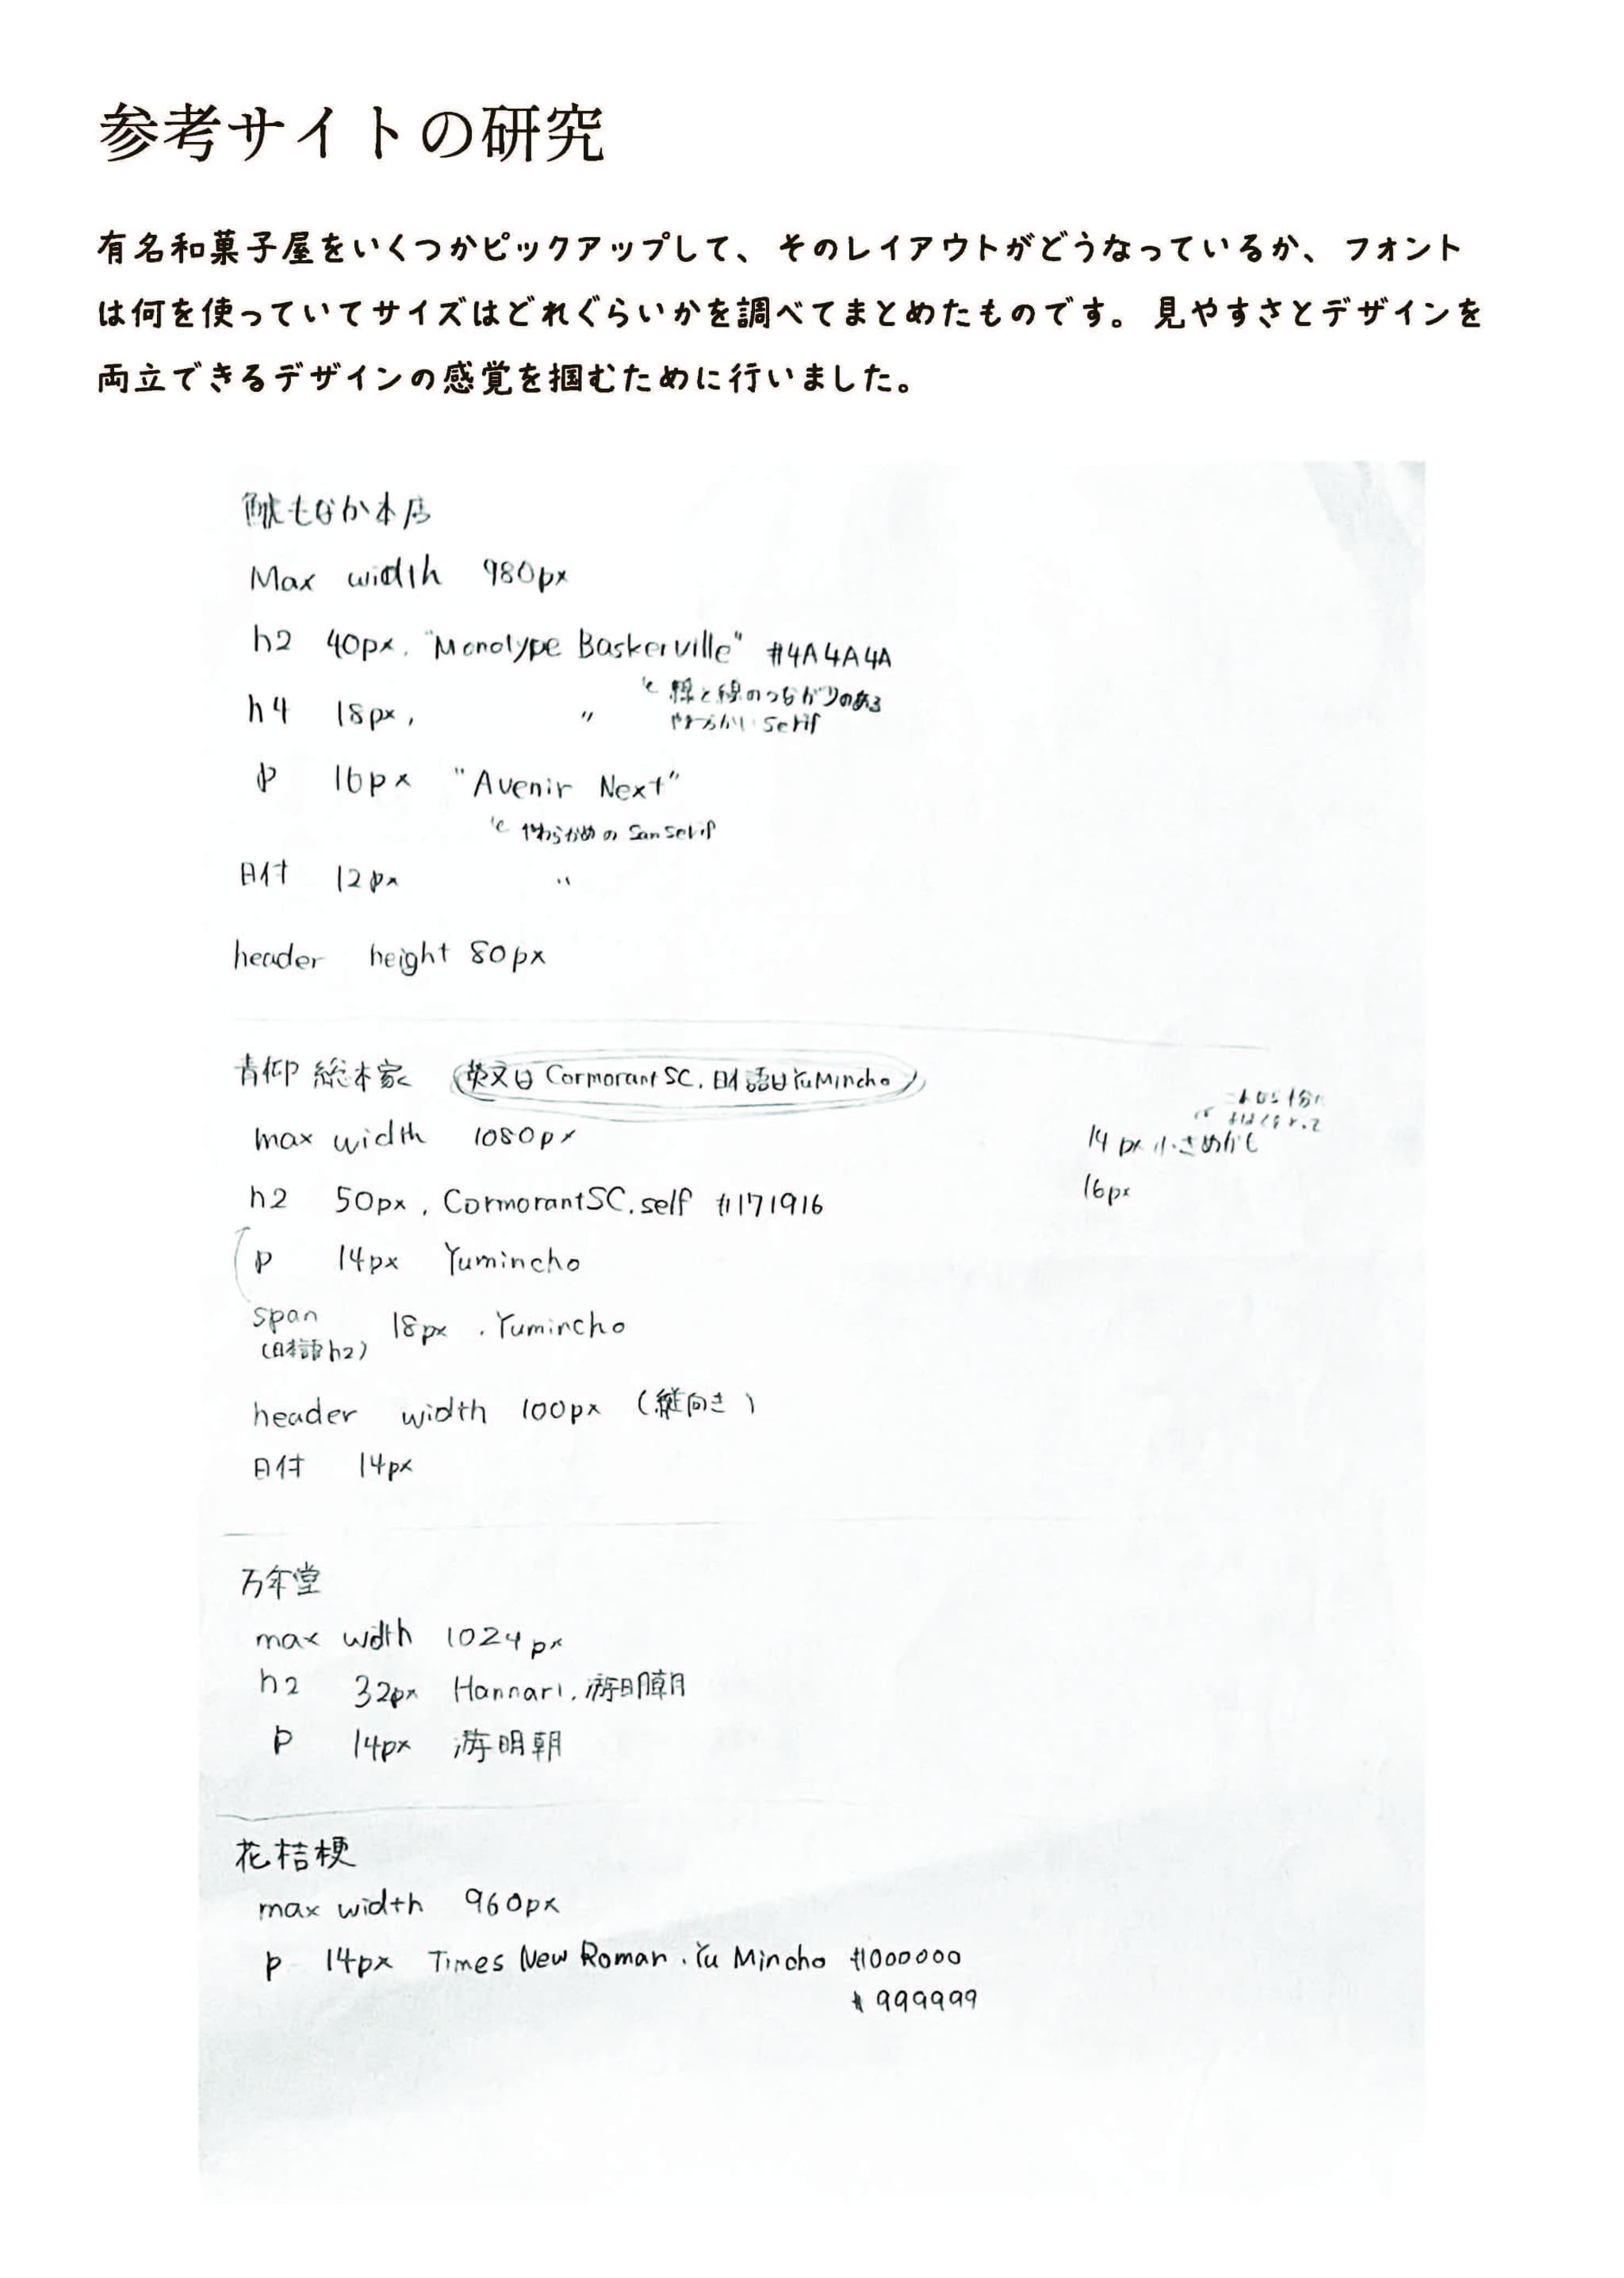 参考サイトの研究
有名和菓子屋をいくつかピックアップして、そのレイアウトがどうなっているか、フォント
は何を使っていてサイズはどれぐらいかを調べてまとめたものです。見やすさとデザインを
両立できるデザインの感覚を掴むために行いました。
もなか本店
Max width 980px
h2 40px, "Monotype Baskerville" #4A4A4A
線と線のつながりのある
h4 18px, 〃
やわらかい Serif
p 16px "Avenir Next"
やわらかめの San serif
日付 12px 〃
header height 80px
青柳 総本家 英文は Cormorant SC, 日本語は YuMincho
max width 1080px
14px 小さめかも
h2 50px, CormorantSC, self #171916
16px
p 14px Yumincho
span 18px, Yumincho
(日本語 h2)
header width 100px (縦向き)
日付 14px
万年堂
max wdth 1024px
h2 32px Hannari, 游明朝
p 14px 游明朝
花桔梗
max width 960px
p 14px Times New Roman, Yu Mincho #000000
#999999